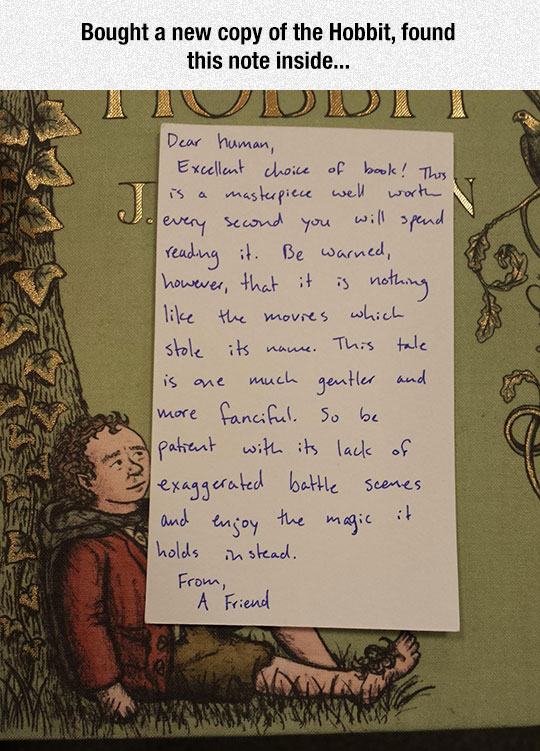 Bought a new copy of the Hobbit, found
this note inside...
HOBBIT
J.
N
Dear human,
Excellent choice of book! This
is a masterpiece well worth
every second you will spend
reading it. Be warned,
however, that it is nothing
like the movies which
stole its name. This tale
is one much gentler and
more fanciful. So be
patient with its lack of
exaggerated battle scenes
and enjoy the magic it
holds instead.
From,
A Friend